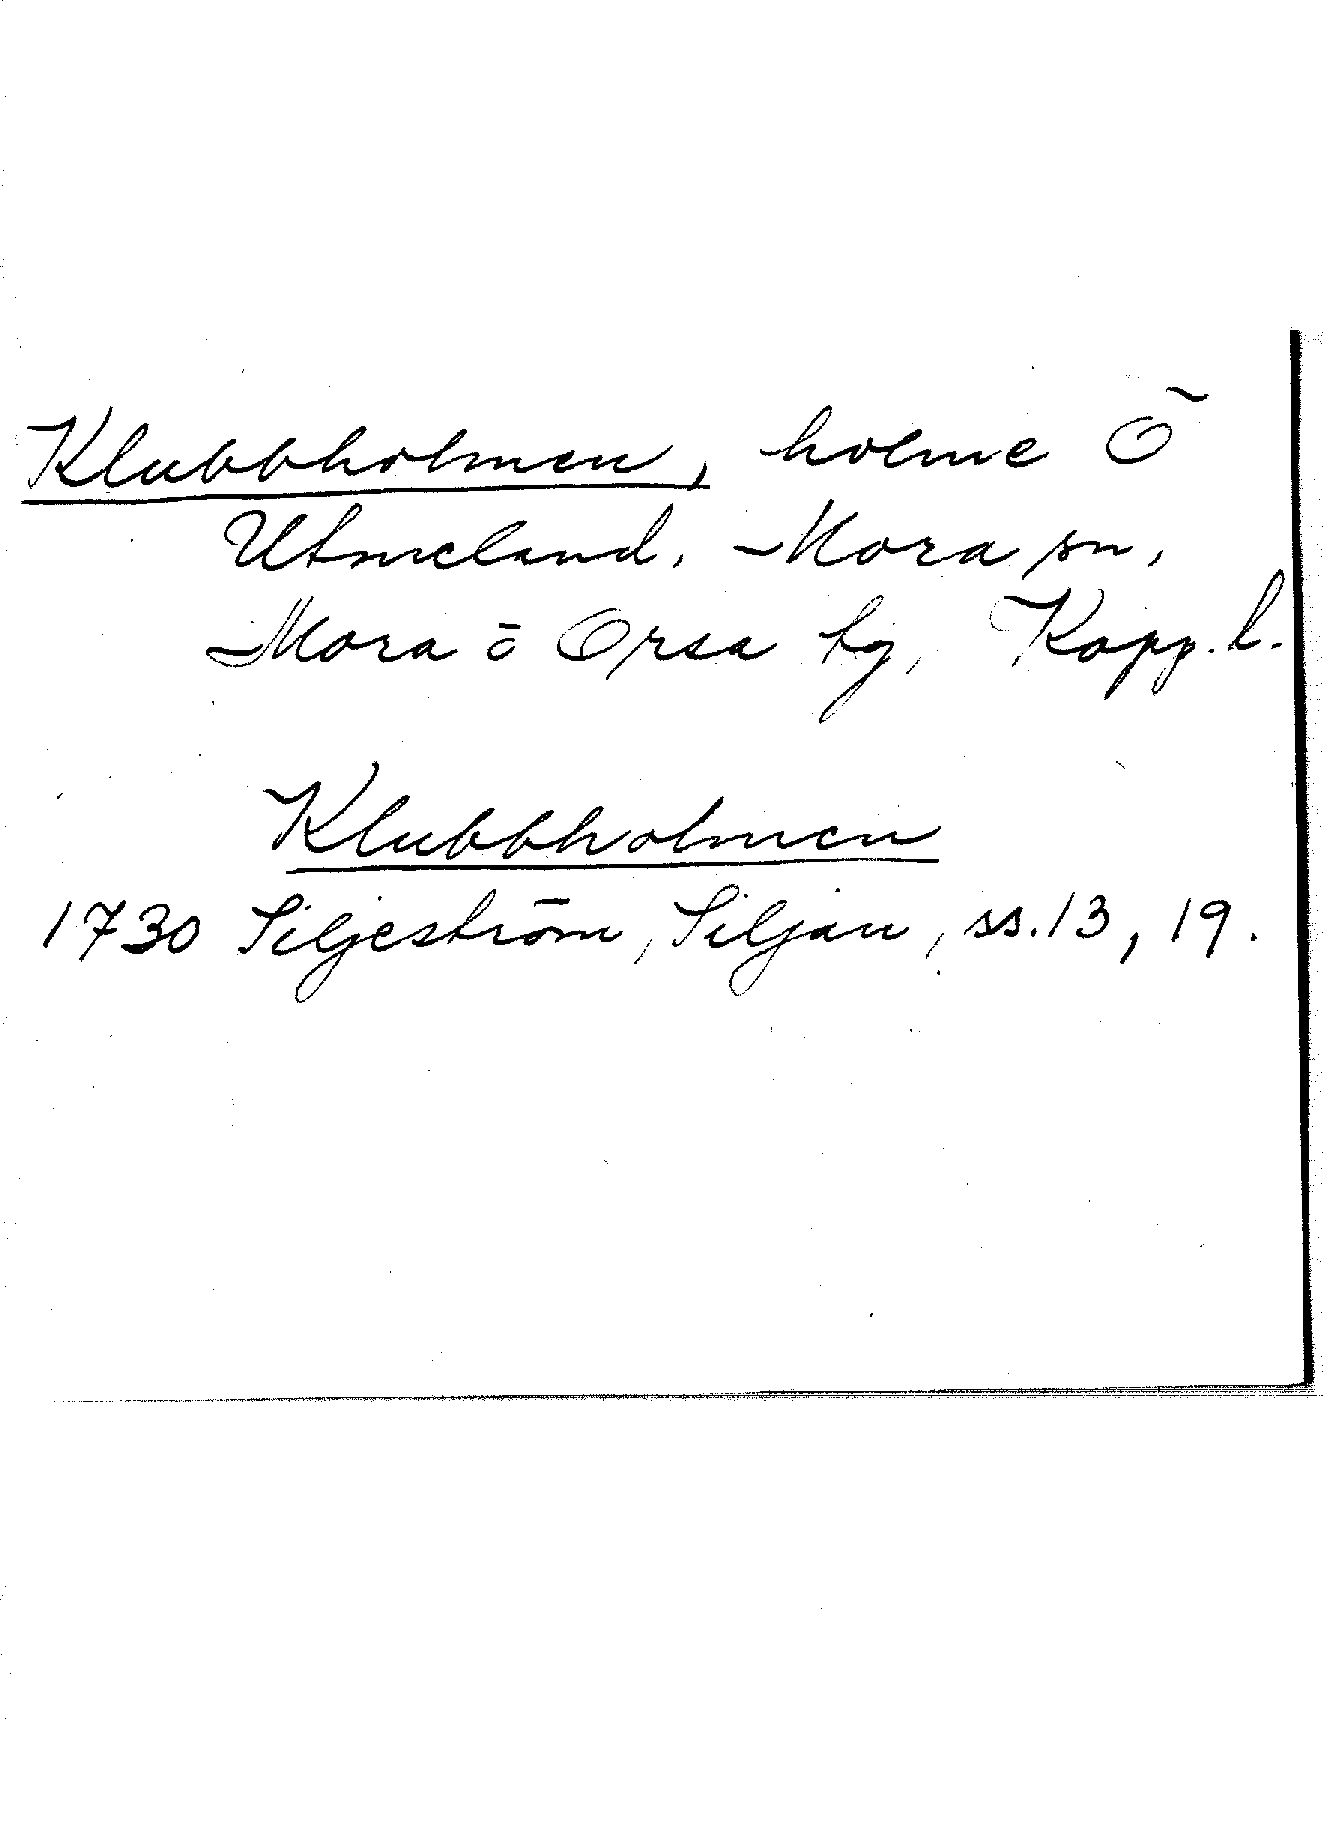 Klubbholmen, holme Ö
Utmeland, Mora sn,
Mora o Orsa tg, Kopp. l.
Klubbholmen
1730 Siljeström, Siljan, ss. 13, 19.